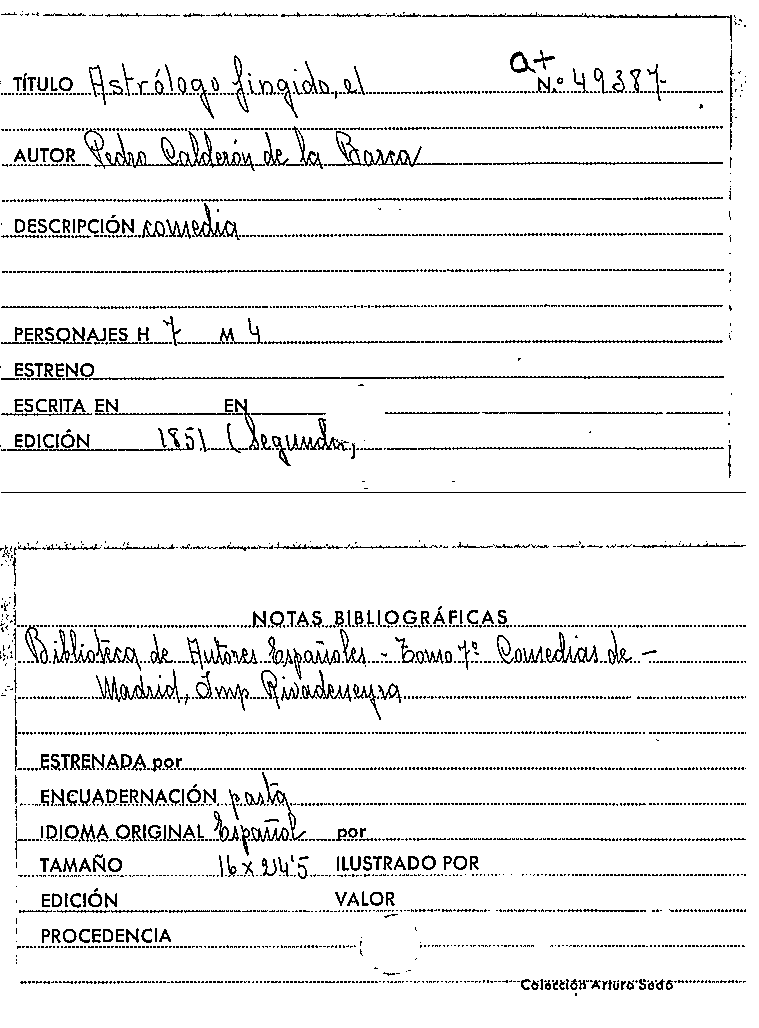 a+
TÍTULO Astrólogo fingido, el N.º 49387
AUTOR Pedro Calderón de la Barca
DESCRIPCIÓN comedia
PERSONAJES H 7 M 4
ESTRENO
ESCRITA EN EN
EDICIÓN 1851 (Segunda)
NOTAS BIBLIOGRÁFICAS
Biblioteca de Autores Españoles - Tomo 7º Comedias de -
Madrid, Imp Rivadeneyra
ESTRENADA por
ENCUADERNACIÓN pasta
IDIOMA ORIGINAL Español por
TAMAÑO 16 x 24'5 ILUSTRADO POR
EDICIÓN VALOR
PROCEDENCIA
Colección Arturo Sedó